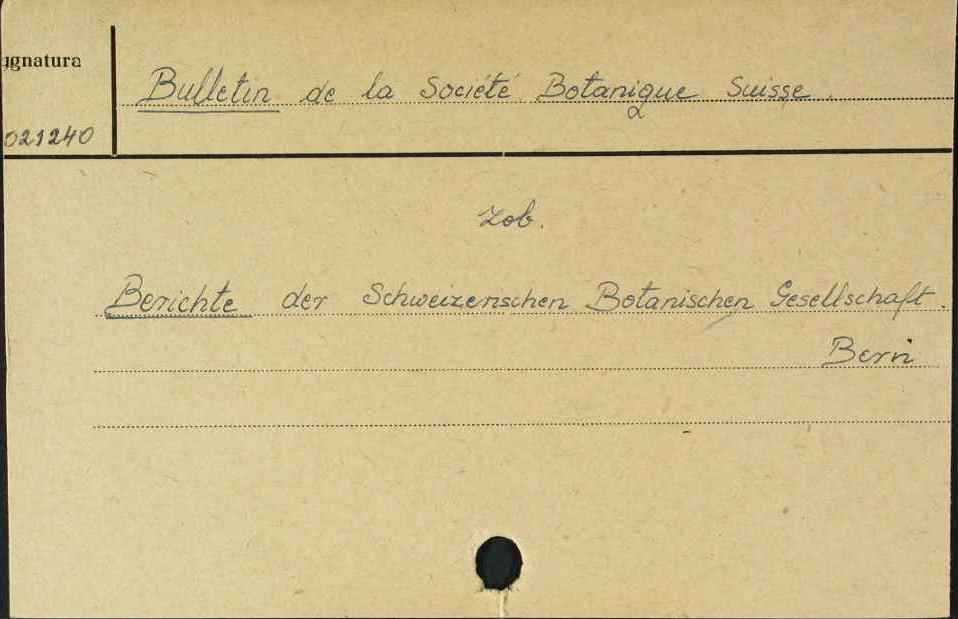 ignatura
Bulletin de la Société Botanique Suisse.
021240
zob.
Berichte der Schweizerischen Botanischen Gesellschaft.
Bern